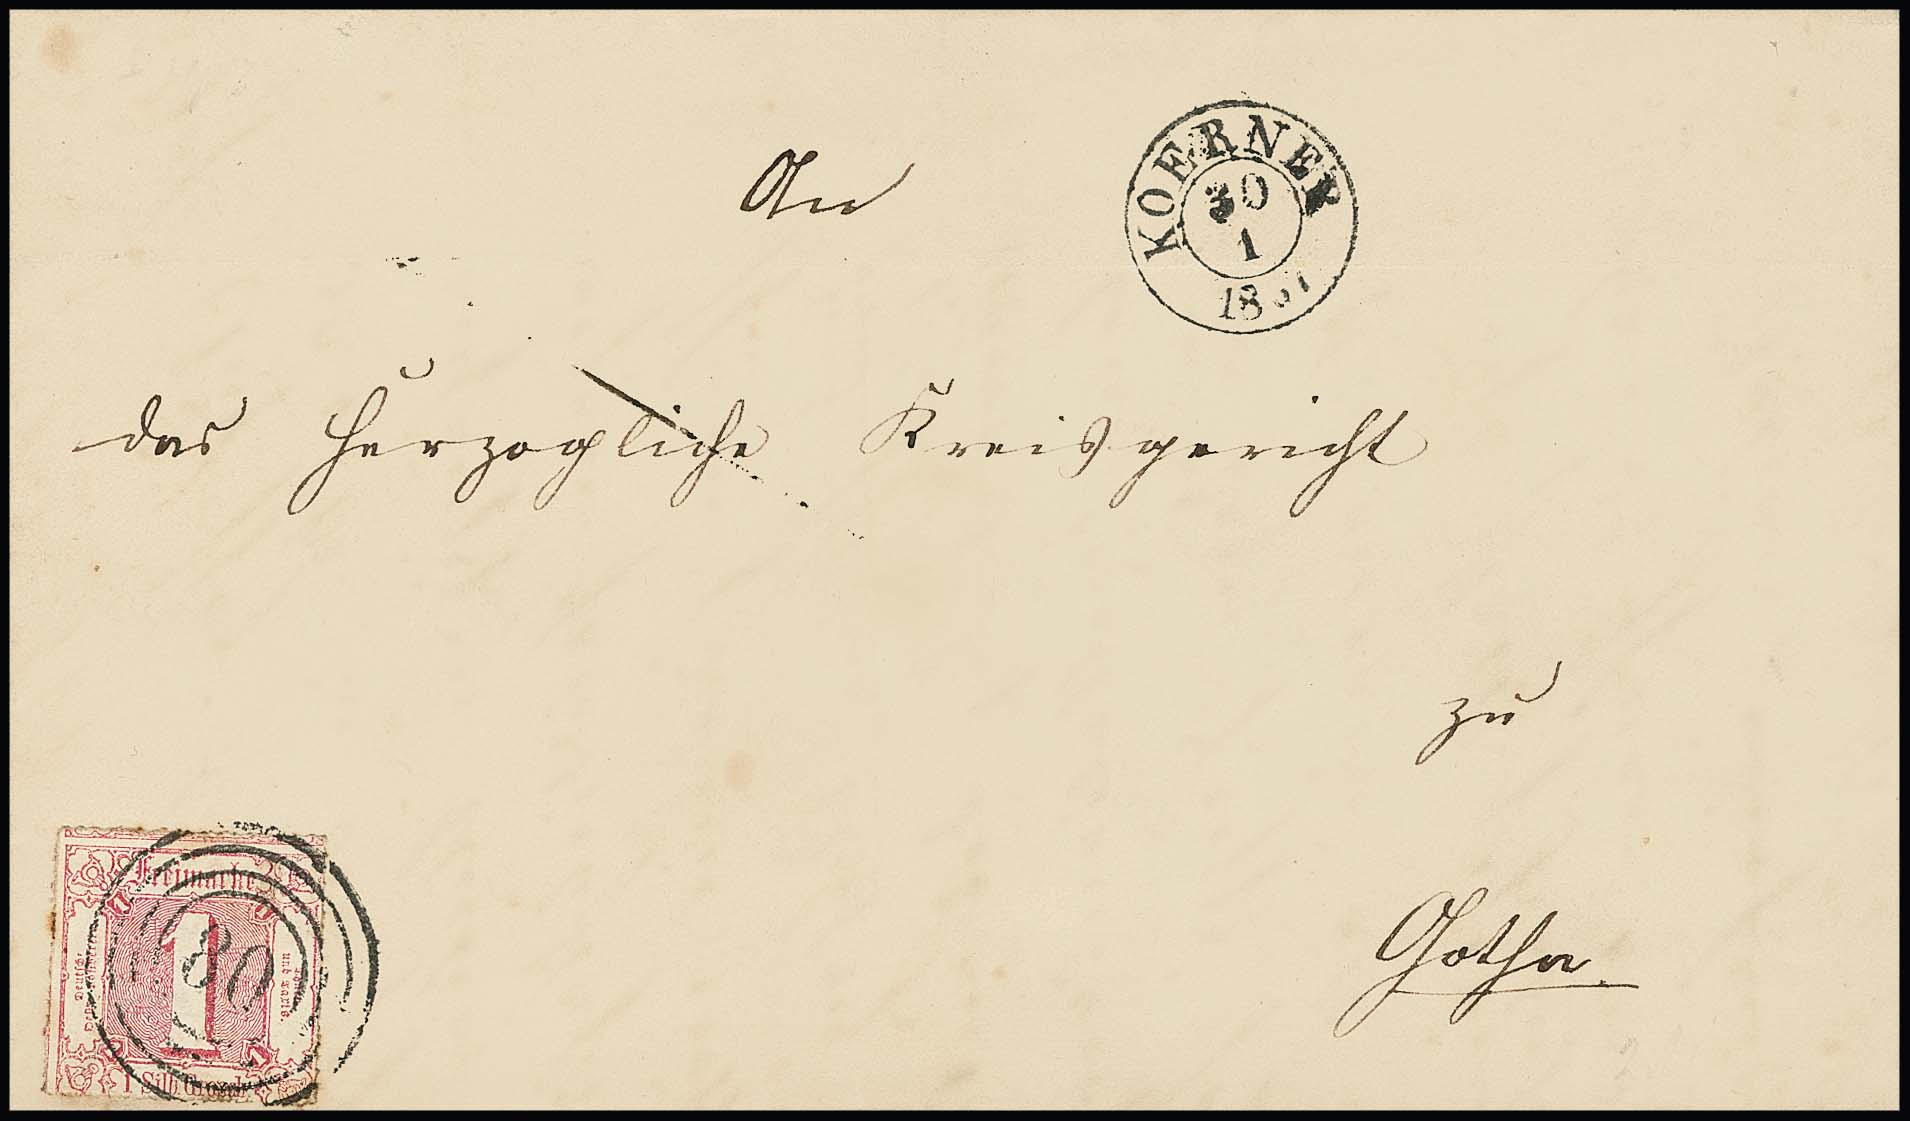 An
KOERNER
30
1
18
das Herzogliche Kreisgericht
zu
Gotha
Freimarke
1
1
1
1
80
Deutsche
und Taxis
1 Silb. Grosch.